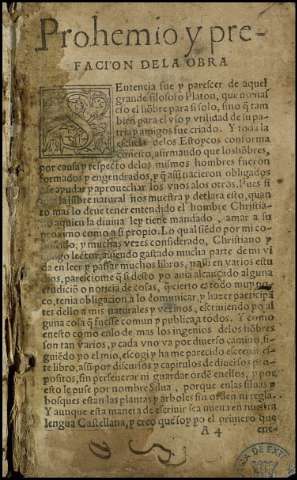 Prohemio y pre-
FACION DE LA OBRA
SEntencia fue y parescer de aquel
grande filosofo Platon, que no nas
cio el hõbre para si solo, sino q̃ tam
bien para el vso y vtilidad de su pa
tria y amigos fue criado. Y toda la
escuela delos Estoycos conforma
afirmando que los hõbres,
por causa y respecto delos mismos hombres fueron
formados y engendrados, y q̃ assi nacieron obligados
ayudar y aprouechar los vnos alos otros. Pues si
la lũbre natural nos muestra y declara esto, quan
to mas lo deue tener entendido el hombre Christia
no a quien la diuina ley tiene mandado, amar a su
proximo como a si propio. Lo qual siẽdo por mi co
noscido, y muchas vezes considerado, Christiano y
lector, auiendo gastado mucha parte de mi vi
da en leer y passar muchos libros, y assi en varios estu
dios, paresciome q̃ si dello yo auia alcançado alguna
erudiciõ o noticia de cosas, q̃ cierto es todo muy po
co, tenia obligacion a lo comunicar, y hazer participã
tes dello a mis naturales y vezinos, escriuiendo yo al
guna cosa q̃ fuesse comun y publica a todos. Y como
enesto como enlo de mas los ingenios delos hõbres
son tan varios, y cada vno va por diuerso camino, si-
guiẽdo yo el mio, escogi y ha me parecido escreuir es
te libro, assi por discursos y capitulos de diuersos pro
positos, sin perseuerar ni guardar ordẽ enellos, y por
esto le puse por nombre Silua, porque enlas siluas y
bosques estan las plantas y arboles sin orden ni regla.
Y aunque esta manera de escriuir sea nueua en nuestra
lengua Castellana, y creo que soy yo el primero que
A 4 ene-